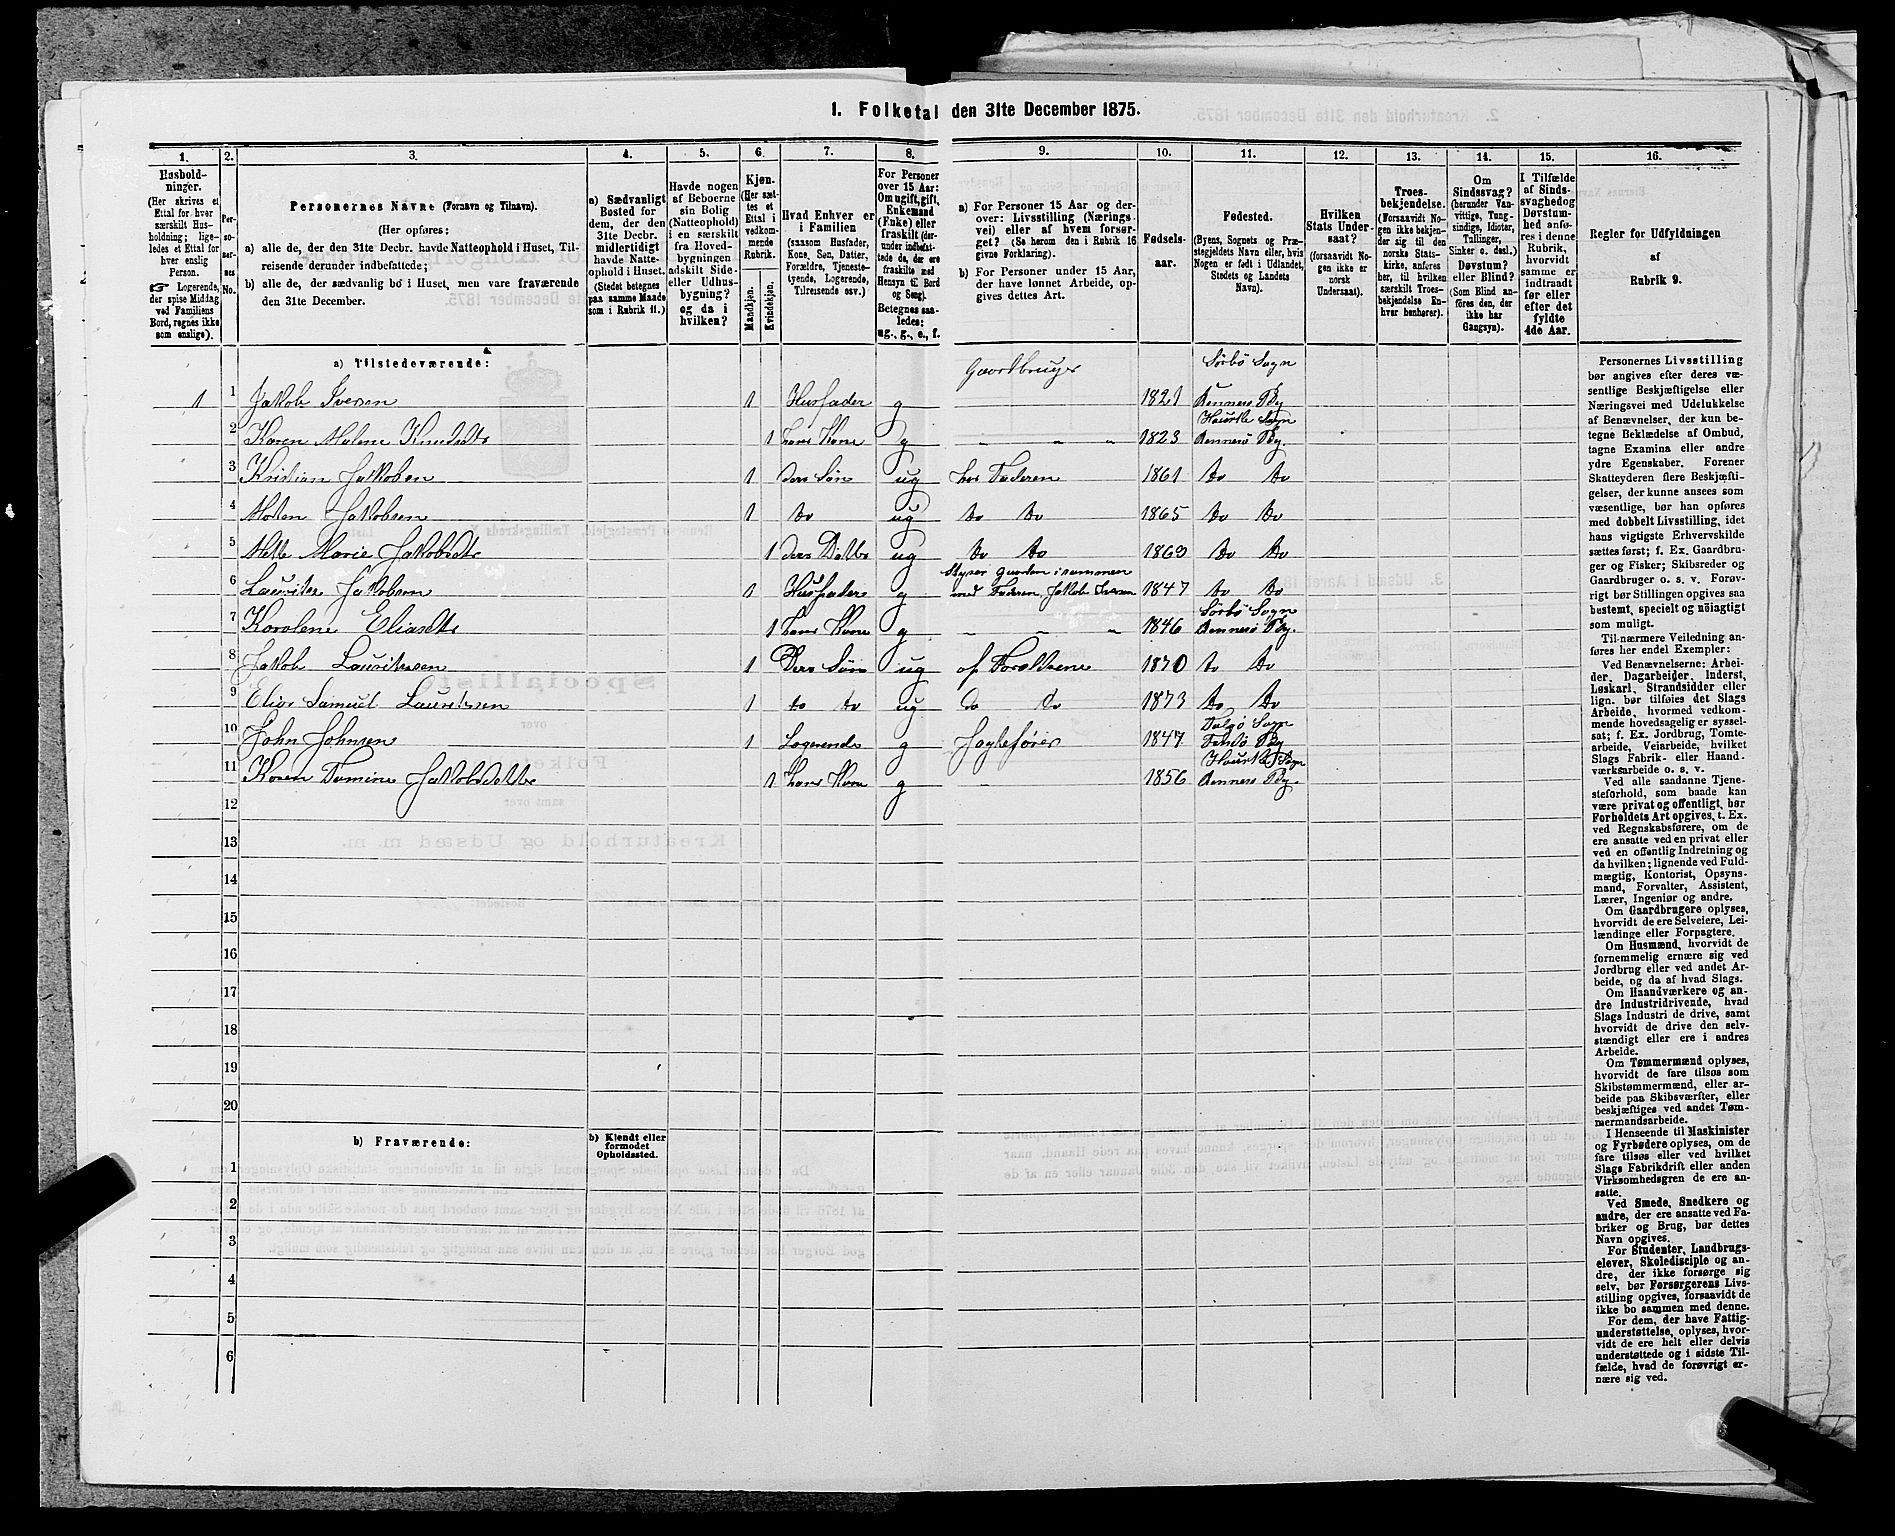 1. Folketal den 31te December 1875.
1. 2. 3. 4. 5. 6. 7. 8. 9. 10. 11. 12. 13. 14. 15. 16.
Husholdninger.
(Her skrives et
Ettal for hver
særskilt Husholdning;
ligeledes et Ettal for
hver enslig
Person.
☞ Logerende,
der spise Middag
ved Familiens
Bord, regnes ikke
som enslige).
Personernes No.
Personernes Navne (Fornavn og Tilnavn).
(Her opføres:
a) alle de, der den 31te Decbr. havde Natteophold i Huset, Tilreisende
derunder indbefattede;
b) alle de, der sædvanlig bo i Huset, men vare fraværende
den 31te December.
a) Sædvanligt
Bosted for
dem, der den
31te Decbr.
midlertidigt
havde Natteophold
i Huset.
(Stedet betegnes
paa samme Maade
som i Rubrik 11.)
Havde nogen
af Beboerne
sin Bolig
(Natteophold)
i en særskilt
fra Hovedbygningen
adskilt Side-
eller Udhusbygning?
og da i
hvilken?
Kjøn.
(Her sættes
et
Ettal i
vedkommende
Rubrik.
Mandkjøn.
Kvindekjøn.
Hvad Enhver er
i Familien
(saasom Husfader,
Kone, Søn, Datter,
Forældre, Tjenestetyende,
Logerende,
Tilreisende osv.)
For Personer
over 15 Aar:
Om ugift, gift,
Enkemand
(Enke) eller
fraskilt (derunder
indbefattede
de, der ere
fraskilte med
Hensyn til Bord
og Seng).
Betegnes saaledes:
ug., g., e., f.
a) For Personer 15 Aar og derover:
Livsstilling (Næringsvei)
eller af hvem forsørget?
(Se herom den i Rubrik 16
givne Forklaring).
b) For Personer under 15 Aar,
der have lønnet Arbeide, opgives
dettes Art.
Fødselsaar.
Fødested.
(Byens, Sognets og Præstegjeldets
Navn eller, hvis
Nogen er født i Udlandet,
Stedets og Landets
Navn).
Hvilken
Stats Undersaat?
(forsaavidt Nogen
ikke er
norsk
Undersaat).
Troesbekjendelse.
(Forsaavidt Nogen
ikke bekjender
sig til den
norske Statskirke,
anføres
her, til hvilken
særskilt Troesbekjendelse
Enhver
henhører).
Om
Sindssvag?
(herunder Vanvittige,
Tungsindige,
Idioter,
Tullinger,
Sinker o. desl.)
Døvstum?
eller Blind?
(Som Blind anføres
den, der
ikke har
Gangsyn).
I Tilfælde
af Sindssvaghed
og
Døvstumhed
anføres
i denne
Rubrik,
hvorvidt
samme er
indtraadt
før eller
efter det
fyldte
4de Aar.
Regler for Udfyldningen
af
Rubrik 9.
a) Tilstedeværende:
1 1 Jakob Iversen 1 Husfader g Gaardbruger 1821 Sørbø Sogn Rennesø Pg.
2 Karen Malene Knudsdtr 1 hans Kone g „ „ „ 1823 Hauske Sogn Rennesø Pg.
3 Kristian Jakobsen 1 deres Søn ug hos Faderen 1861 do do
4 Morten Jakobsen 1 do ug do do 1865 do do
5 Mette Marie Jakobsdtr 1 deres Datter ug do do 1869 do do
6 Lauritz Jakobsen 1 Husfader g styrer gaarden isammen med Faderen, Jakob Iversen 1847 do do
7 Karolene Eliasdtr 1 hans Kone g „ „ „ 1846 Sørbø Sogn Rennesø Pg.
8 Jakob Lauritzsen 1 Deres Søn ug af Forældrene 1870 do do
9 Elias Samuel Lauritzsen 1 do do ug do do 1873 do do
10 John Johnsen 1 Logerende g 1847 Talgø Sogn Pg
11 Karen Tomine Jakobsdatter 1 hans Kone g „ 1856 Hauske Sogn Rennesø Pg.
12
13
14
15
16
17
18
19
20
b) Fraværende:
b) Kjendt eller
formodet
Opholdssted.
1
2
3
4
5
6
Personernes Livsstilling
bør angives efter deres væsentlige
Beskjæftigelse eller
Næringsvei med Udelukkelse
af Benævnelser, der kun betegne
Beklædelse af Ombud,
tagne Examina eller andre
ydre Egenskaber. Forener
Skatteyderen flere Beskjæftigelser,
der kunne ansees som
væsentlige, bør han opføres
med dobbelt Livsstilling, idet
hans vigtigste Erhvervskilde
sættes først; f. Ex. Gaardbruger
og Fisker; Skibsreder og
Gaardbruger o. s. v. Forøvrigt
bør Stillingen opgives saa
bestemt, specielt og nøiagtigt
som muligt.
Til nærmere Veiledning anføres
her endel Exempler:
Ved Benævnelserne: Arbeider,
Dagarbeider, Inderst,
Løskarl, Strandsidder eller
lign. bør tilføies det Slags
Arbeide, hvormed vedkommende
hovedsagelig er sysselsat;
f. Ex. Jordbrug, Tomtearbeide,
Veiarbeide, hvilket
Slags Fabrik- eller Haandværksarbeide
o. s. v.
Ved alle saadanne Tjenesteforhold,
som baade kan
være privat og offentligt, bør
Forholdets Art opgives, t. Ex.
ved Regnskabsførere, om de
ere ansatte ved en privat eller
ved en offentlig Indretning og
da hvilken; lignende ved Fuldmægtig,
Kontorist, Opsynsmand,
Forvalter, Assistent,
Lærer, Ingeniør og andre.
Om Gaardbrugere oplyses,
hvorvidt de ere Selveiere, Leilændinge
eller Forpagtere.
Om Husmænd, hvorvidt de
fornemmelig ernære sig ved
Jordbrug eller ved andet Arbeide,
og da af hvad Slags.
Om Haandværkere og andre
Industridrivende, hvad
Slags Industri de drive, samt
hvorvidt de drive den selvstændigt
eller ere i andres
Arbeide.
Om Tømmermænd oplyses,
hvorvidt de fare tilsøs som
Skibstømmermænd, eller arbeide
paa Skibsværfter, eller
beskjæftiges ved andet Tømmermandsarbeide.
I Henseende til Maskinister
og Fyrbødere oplyses, om de
fare tilsøs eller ved hvilket
Slags Fabrikdrift eller anden
Virksomhedsgren de ere ansatte.
Ved Smede, Snedkere og
andre, der ere ansatte ved Fabriker
og Brug, bør dettes
Navn opgives.
For Studenter, Landbrugselever,
Skoledisciple og andre,
der ikke forsørge sig
selv, bør Forsørgerens Livsstilling
opgives, forsaavidt de
ikke bo sammen med denne.
For dem, der have Fattigunderstøttelse,
oplyses, hvorvidt
de ere helt eller delvis
understøttede og i sidste Tilfælde,
hvad de forøvrigt ernære
sig ved.